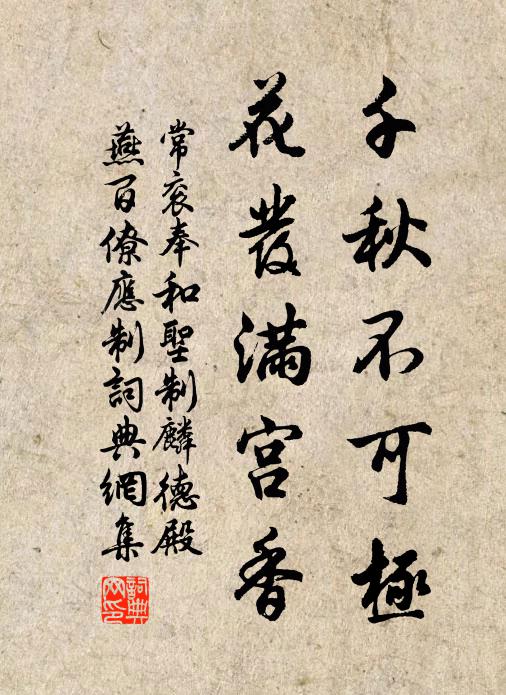 千秋不可極
花發滿宮香
常袞奉和聖制麟德殿
燕百僚應制詞典網集
詞典网印